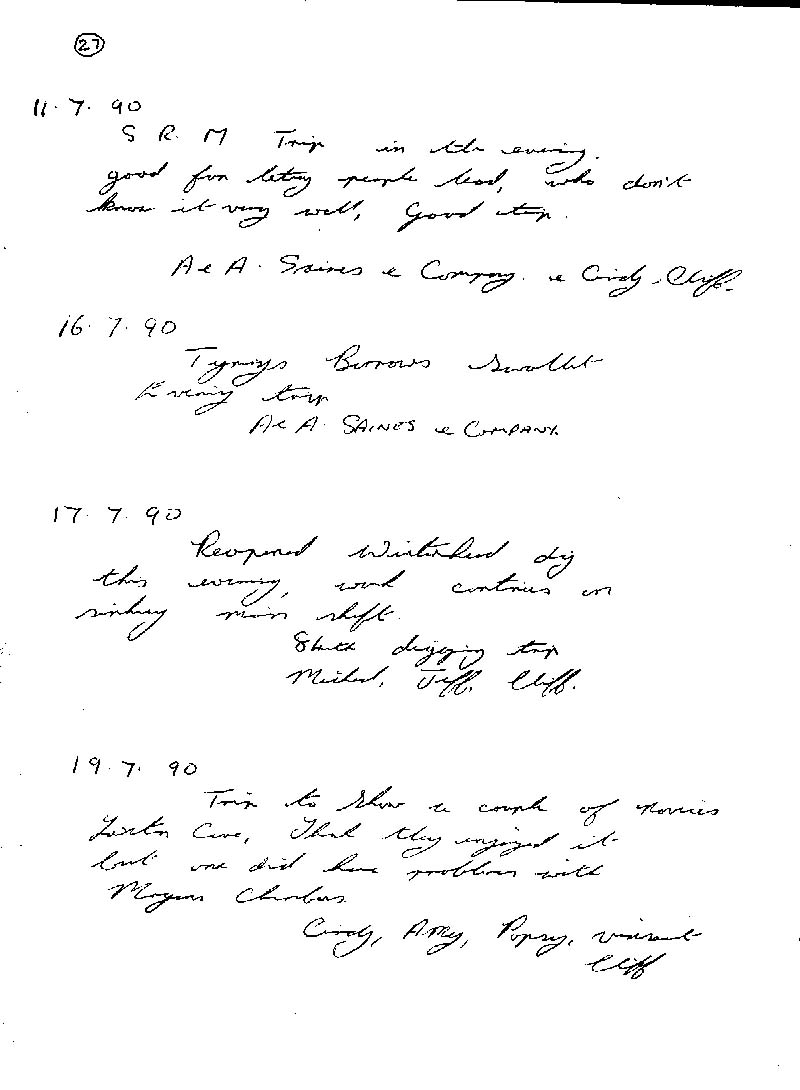 27
11. 7. 90
S R. M Trip in the evening.
good fun letting people lead, who don't
know it very well, Good trip.
A & A. Saines & Company. & Cindy. Cliff.
16. 7. 90
Tynings Burrows Swallet
Evening trip
A & A. SAINES & COMPANY.
17. 7. 90
Reopened dig
this evening, work continues on
sinking main shift.
digging trip
Michael, Jeff, Cliff.
19. 7. 90
Trip to show a couple of novices
Cave, Think they enjoyed it
but one did have problem with
Chambers
Cindy, Amy, Popsy, vincent
Cliff